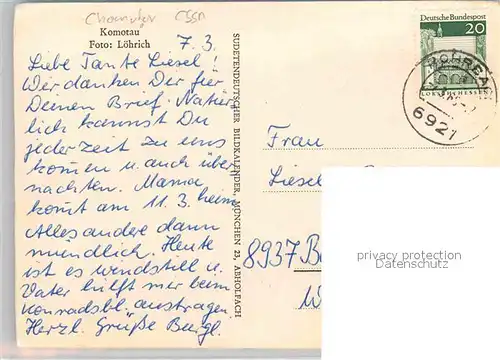 Chomutov ČSSR
Komotau
Foto: Löhrich
7.3.
Liebe Tante Liesel!
Wir danken Dir für
Deinen Brief. Natür
lich kannst Du
jederzeit zu uns
kommen u. auch über
nachten. Mama
kommt am 11.3. heim
Alles andere dann
mündlich. Heute
ist es windstill u.
Vater hilft mir beim
Konradsbl. austragen.
Herzl. Grüße Burgl.
SUDETENDEUTSCHER BILDKALENDER, MÜNCHEN 23, ABHOLFACH
Deutsche Bundespost
20
LORSCH/HESSEN
6921
Frau
Liesel
8937 B
privacy protection
Datenschutz